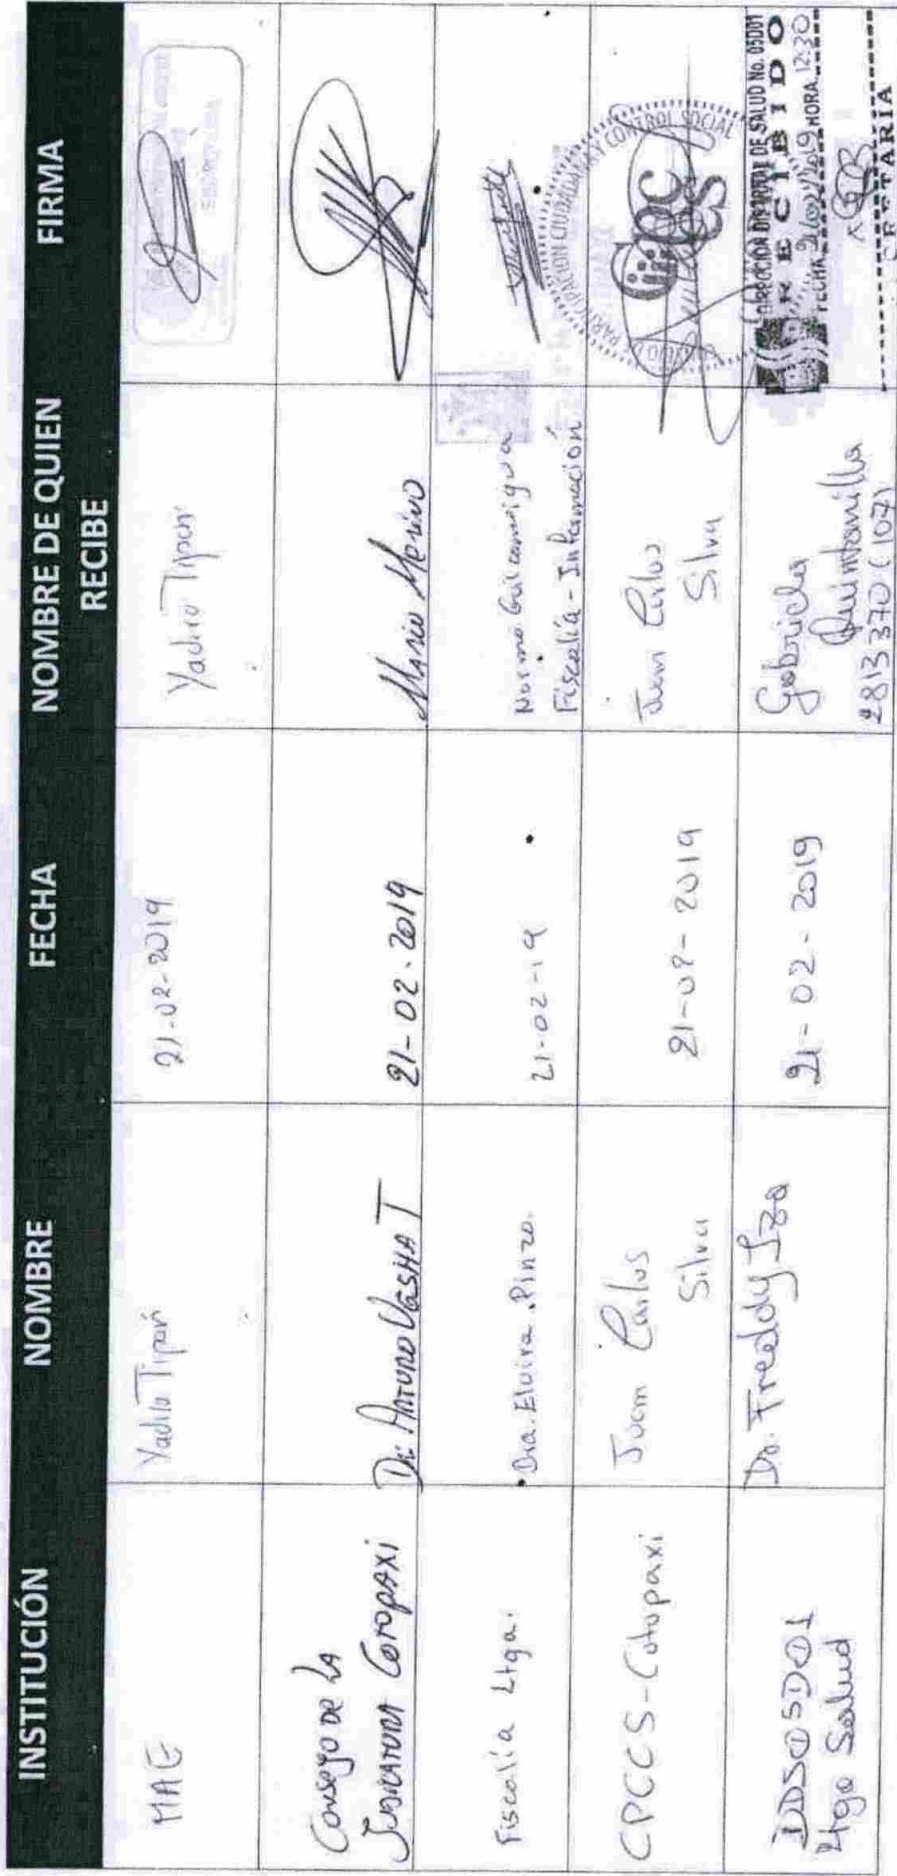 INSTITUCIÓN NOMBRE FECHA NOMBRE DE QUIEN RECIBE FIRMA
MAE Yadira Tipán 21-02-2019 Yadira Tipán
Consejo de la Judicatura Cotopaxi Dr. Arturo Ugsha T 21-02-2019 Mario Merino
Fiscalía Ltga. Dra. Elvira Pinzo. 21-02-19 Norma Guicamigua
Fiscalía - Información
CPCCS-Cotopaxi Juan Carlos Silva 21-02-2019 Juan Carlos Silva
PARTICIPACIÓN CIUDADANA Y CONTROL SOCIAL
DDS05D01 Ltga Salud Dr. Freddy Iza 21-02-2019 Gabriela Quintanilla
2813370 (107)
DIRECCIÓN DISTRITAL DE SALUD No. 05D01
RECIBIDO
FECHA 21/02/2019 HORA 12:30